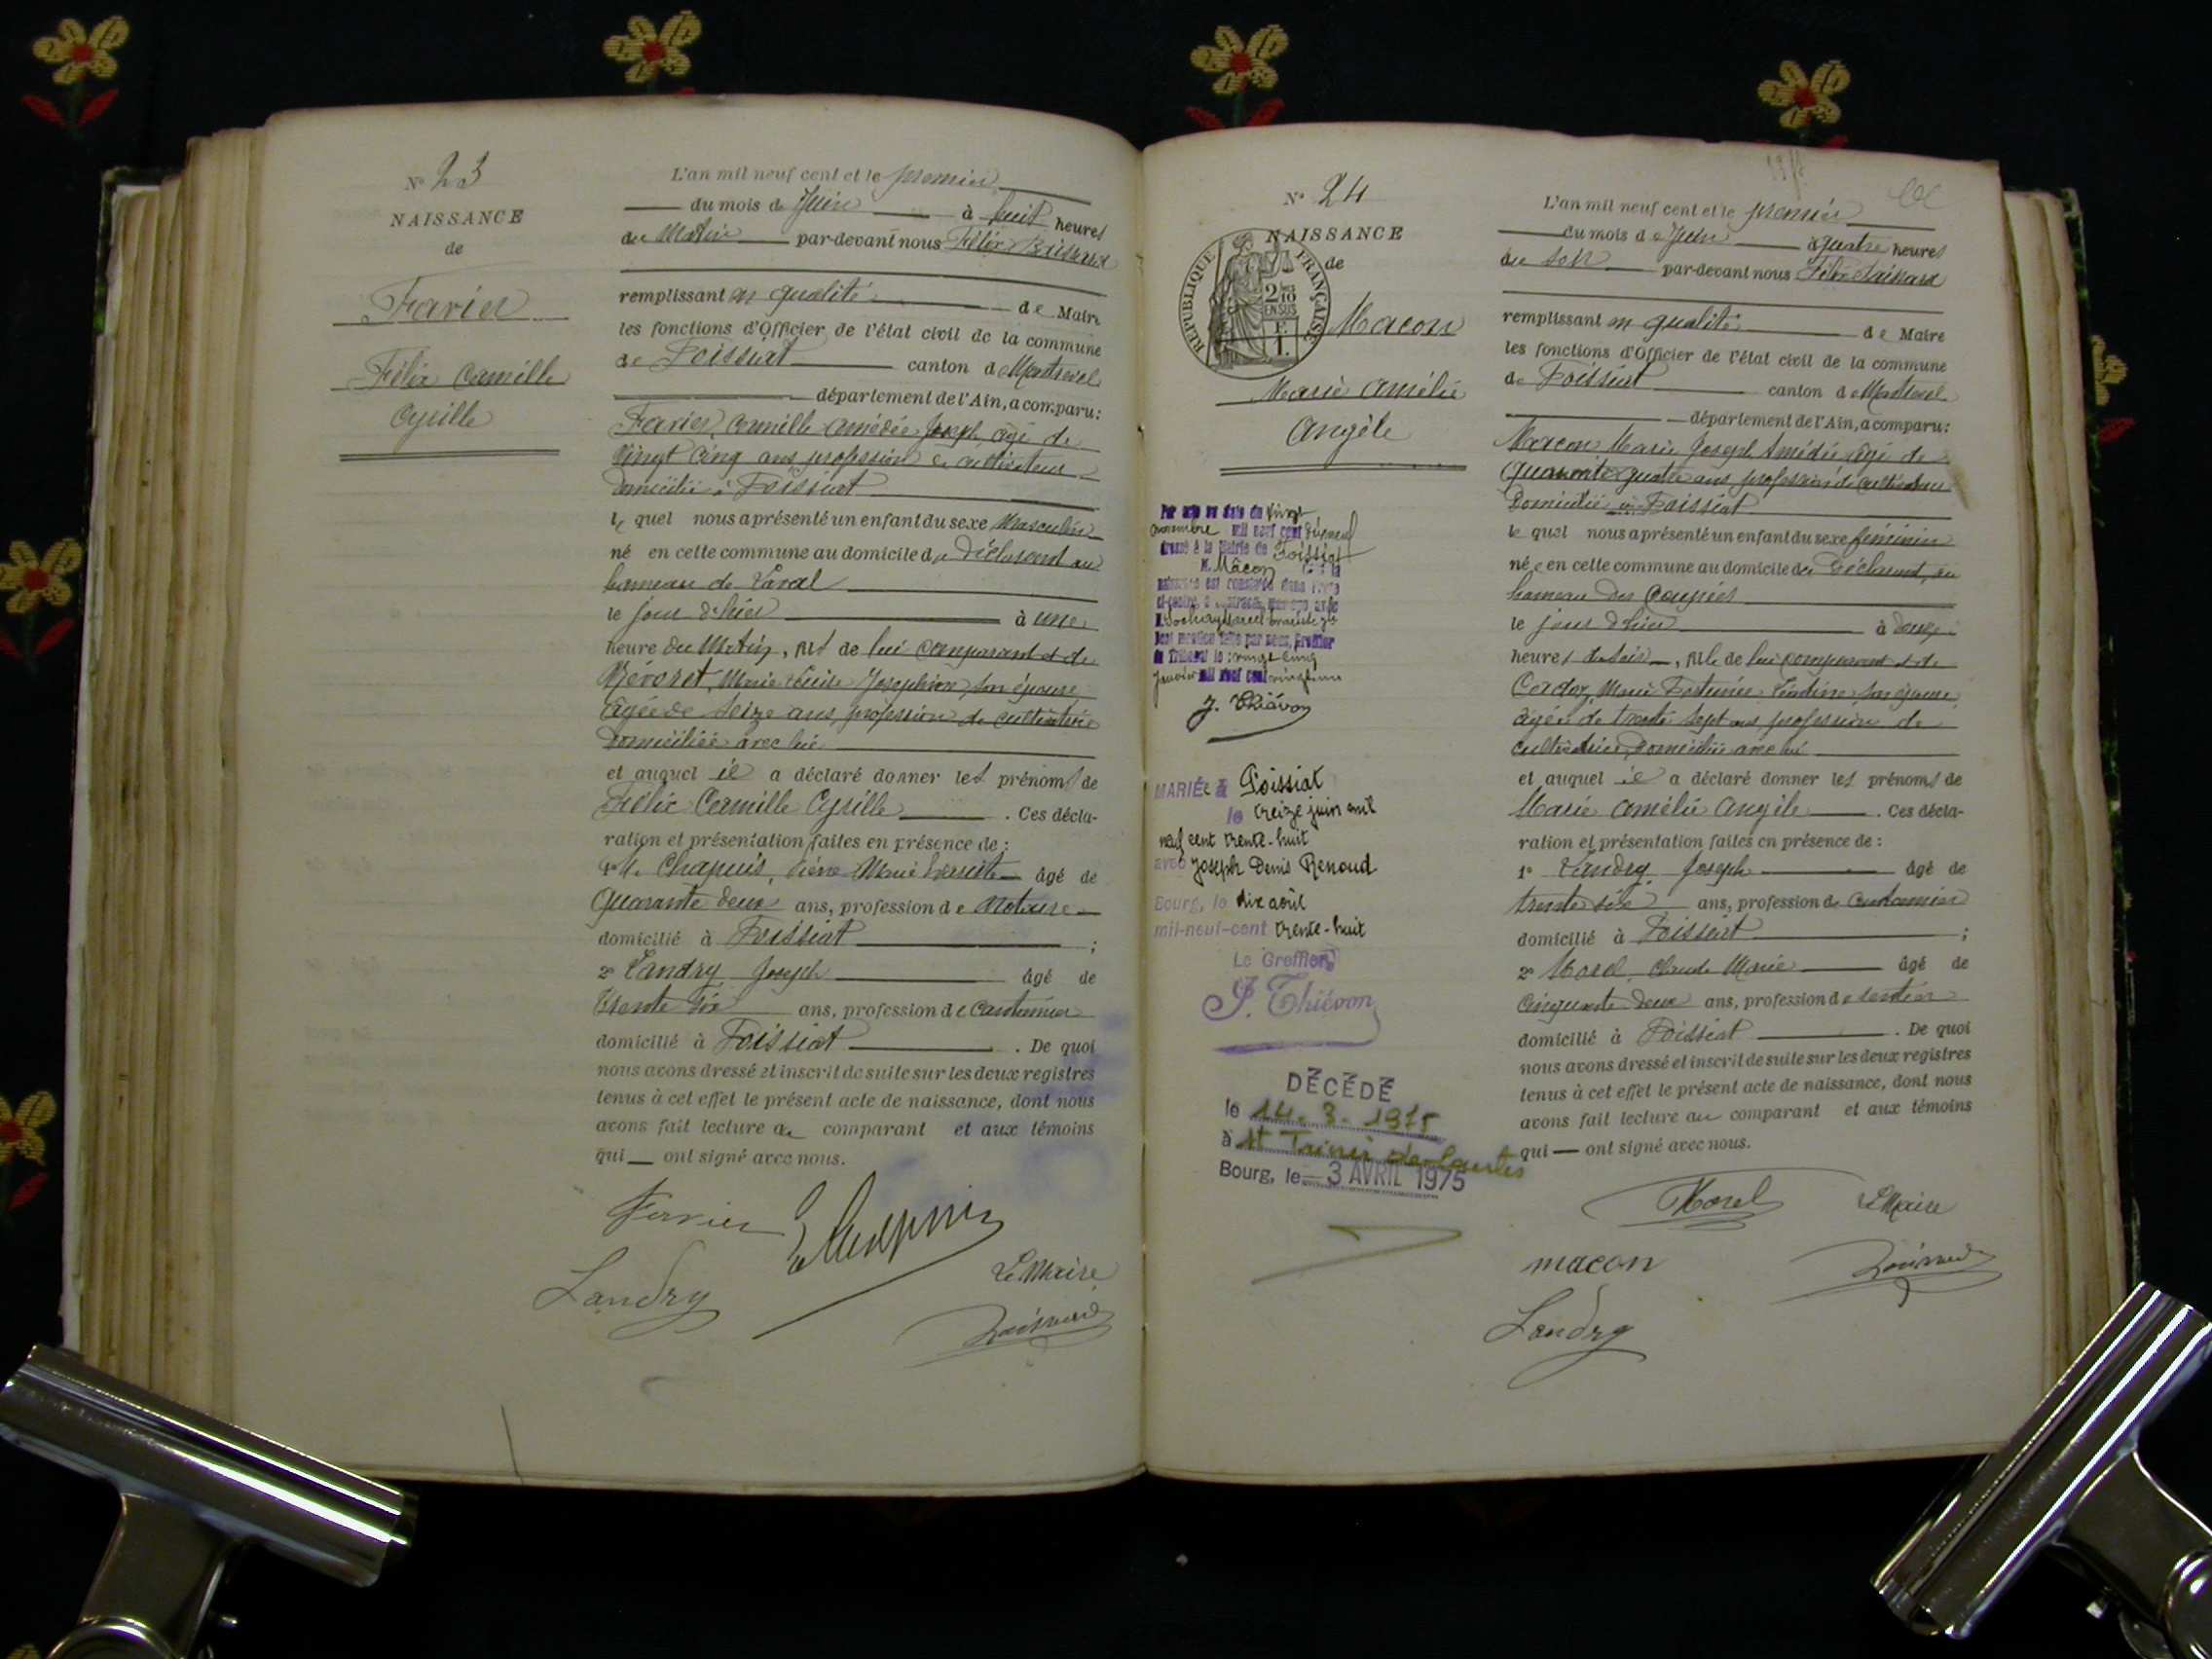 N° 23
NAISSANCE
de
Farier
Félix Camille
Cyrille
L'an mil neuf cent et le premier
du mois de Juin à huit heures
du Matin par-devant nous Félix
remplissant en qualité de Maire
les fonctions d'Officier de l'état civil de la commune
de Foissiat canton de Montrevel
département de l'Ain, a comparu:
Farier, Camille Amédée Joseph, âgé de
Vingt Cinq ans profession de cultivateur
domicilié à Foissiat
le quel nous a présenté un enfant du sexe Masculin
né en cette commune au domicile du Déclarant au
hameau de Laval
le jour d'hier à une
heure du Matin, fils de lui comparant et de
Marie Josephine, son épouse
âgée de Seize ans, profession de cultivatrice
domiciliée avec lui
et auquel il a déclaré donner les prénoms de
Félix Camille Cyrille. Ces décla-
ration et présentation faites en présence de :
1° M. Chapuis, Pierre Marie âgé de
Quarante deux ans, profession de Notaire
domicilié à Foissiat ;
2° Landry Joseph âgé de
Trente six ans, profession de Cantonnier
domicilié à Foissiat. De quoi
nous avons dressé et inscrit de suite sur les deux registres
tenus à cet effet le présent acte de naissance, dont nous
avons fait lecture au comparant et aux témoins
qui — ont signé avec nous.
Farier
Landry
Le Maire
N° 24
NAISSANCE
de
REPUBLIQUE FRANÇAISE
2/10 EN SUS
Macon
Marie Amélie
Angèle
Par acte en date du vingt
novembre mil neuf cent dixneuf
dressé à la Mairie de Foissiat
M. Mâcon dt la
naissance est constatée dans l'acte
ci-contre, a contracté mariage avec
dont mention faite par nous, Greffier
du Tribunal le vingt cinq
janvier mil neuf cent vingt un
J. Thiévon
MARIÉe à Foissiat
le treize juin mil
neuf cent trente-huit
avec Joseph Denis Renoud
Bourg, le dix août
mil-neuf-cent trente-huit
Le Greffier,
J. Thiévon
DÉCÉDÉ
le 14. 3. 1975
à St Trivier de Courtes
Bourg, le 3 AVRIL 1975
L'an mil neuf cent et le premier
du mois de Juin à quatre heures
du soir par-devant nous Félix
remplissant en qualité de Maire
les fonctions d'Officier de l'état civil de la commune
de Foissiat canton de Montrevel
département de l'Ain, a comparu:
Macon Marie Joseph Amédée âgé de
Quarante quatre ans profession de cultivateur
Domicilié à Foissiat
le quel nous a présenté un enfant du sexe féminin
née en cette commune au domicile du Déclarant, au
hameau des
le jour d'hier à douze
heures du soir, fille de lui comparant et de
Marie son épouse
âgée de trente sept ans profession de
cultivatrice, domiciliée avec lui
et auquel il a déclaré donner les prénoms de
Marie Amélie Angèle. Ces décla-
ration et présentation faites en présence de :
1° Landry Joseph âgé de
trente six ans, profession de cantonnier
domicilié à Foissiat ;
2° Morel, Claude Marie âgé de
Cinquante deux ans, profession de rentier
domicilié à Foissiat. De quoi
nous avons dressé et inscrit de suite sur les deux registres
tenus à cet effet le présent acte de naissance, dont nous
avons fait lecture au comparant et aux témoins
qui — ont signé avec nous.
Morel
Le Maire
macon
Landry